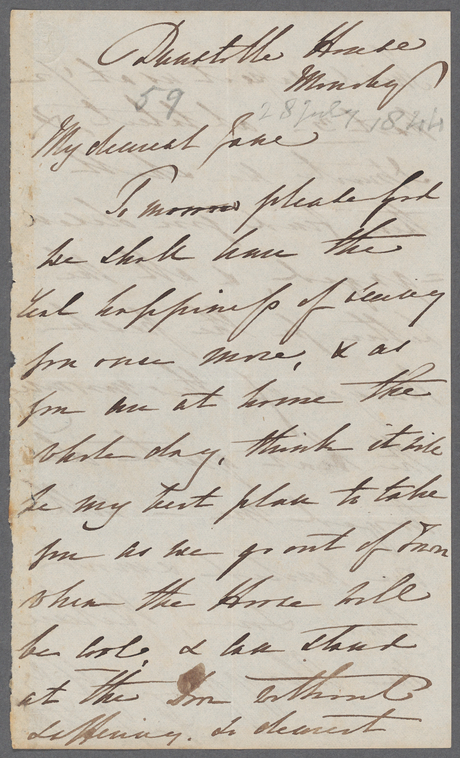 Dunstable House
Monday
59 28 July 1844
My dearest Jane
To morrow please God
we shall have the
real happiness of seeing
you once more, & as
you are at home the
whole day, think it will
be my best plan to take
you as we go out of Town
when the Horse will
be cool, & can stand
at the Door without
suffering. So dearest